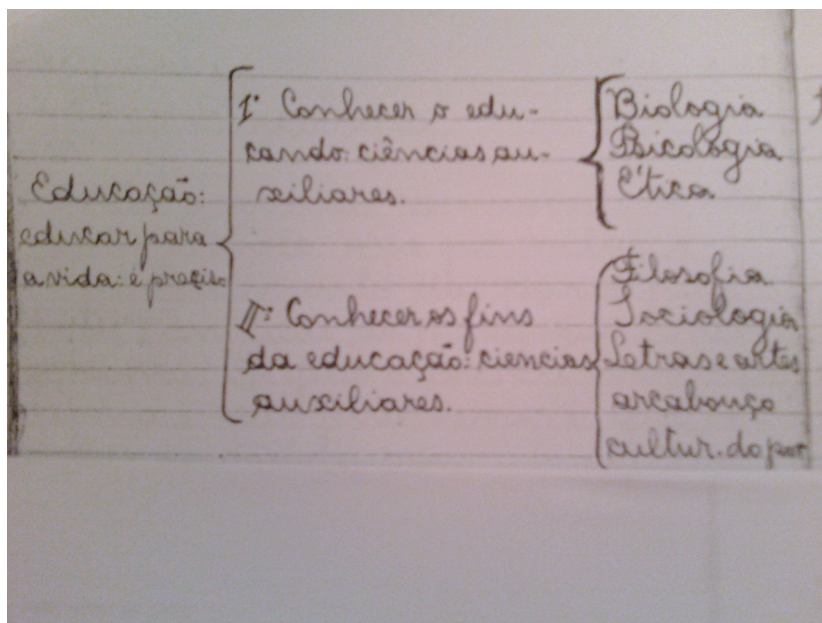 Educação:
educar para
a vida: é preciso
I: Conhecer o edu-
cando: ciências au-
xiliares.
Biologia
Psicologia
Ética
II: Conhecer os fins
da educação: ciencias
auxiliares.
Filosofia
Sociologia
Letras e artes
arcabouço
cultur. do